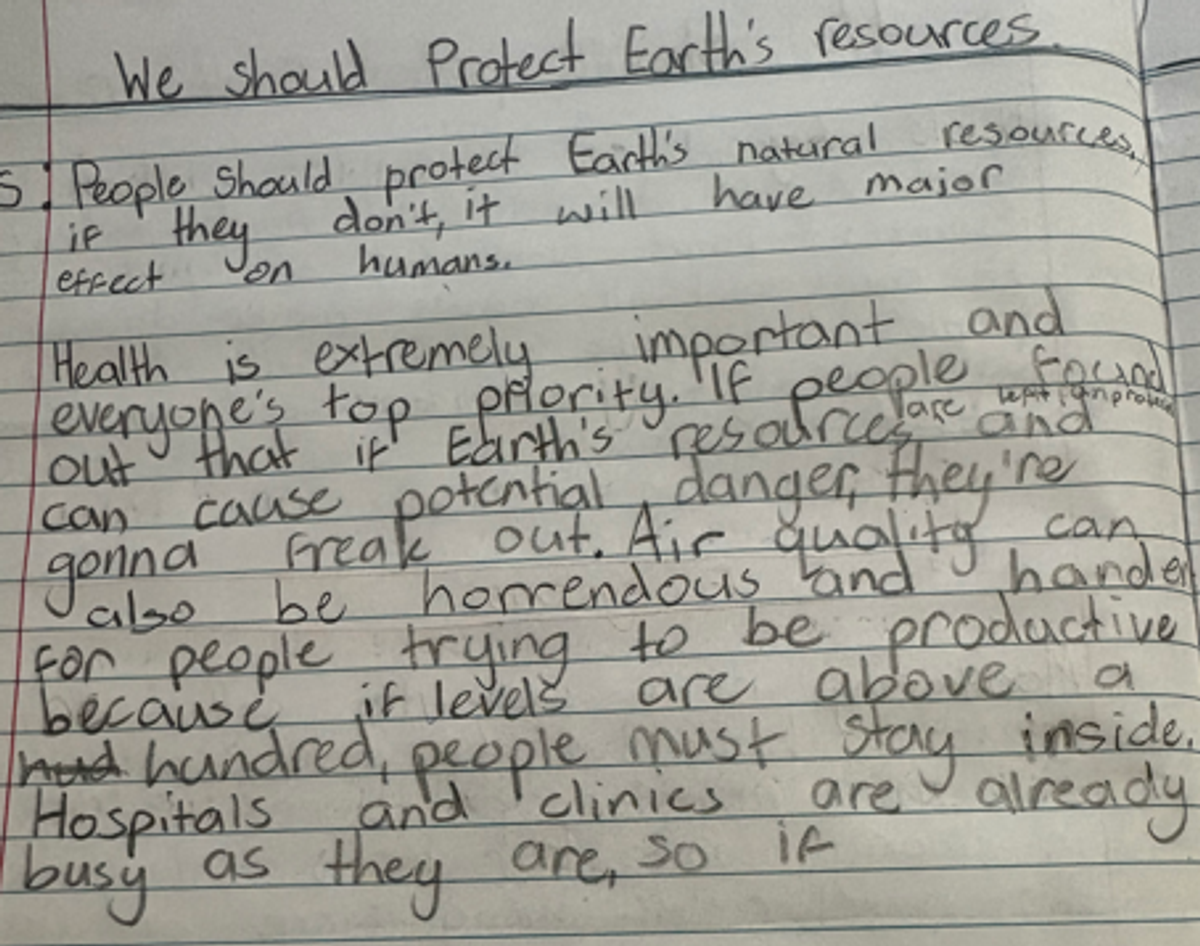 We should Protect Earth's resources.
S: People should protect Earth's natural resources,
if they don't, it will have major
effect on humans.
Health is extremely important and
everyone's top priority. If people found
are kept unprotected
out that if Earth's resources and
can cause potential danger, they're
gonna freak out. Air quality can
also be horrendous and harder
for people trying to be productive
because if levels are above a
hundred, people must stay inside.
Hospitals and clinics are already
busy as they are, so if